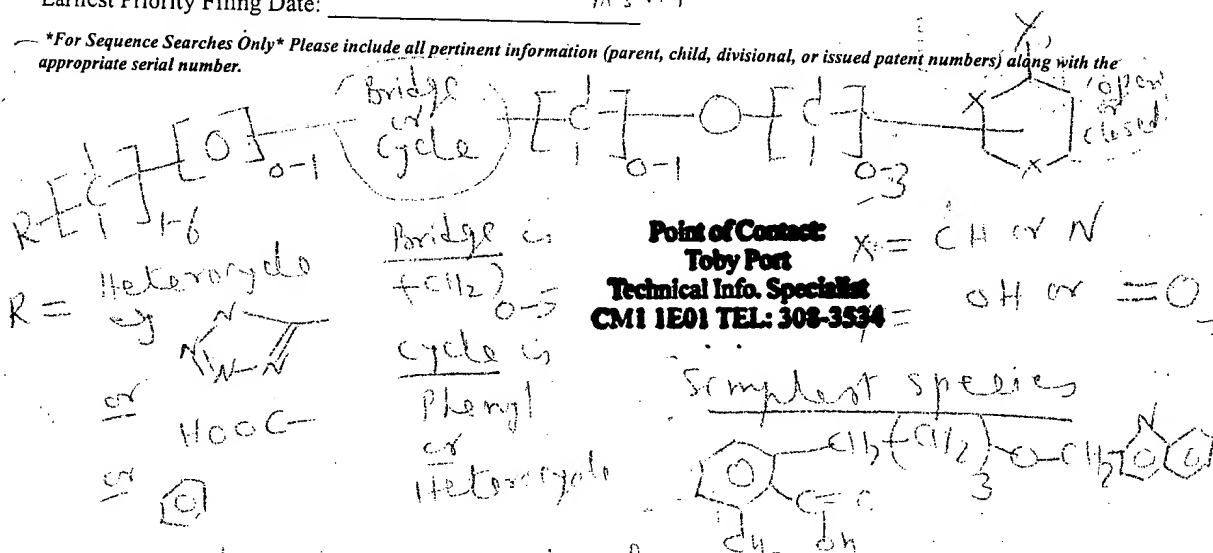 Earliest Priority Filing Date:
*For Sequence Searches Only* Please include all pertinent information (parent, child, divisional, or issued patent numbers) along with the
appropriate serial number.
Y
R-[-C-]1-6 -[O]0-1 - Bridge or Cycle -[-C-]0-1 -O-[-C-]0-3
X
X
open or closed
R = Heterocycle
eg
N
N N-N
or
HOOC-
or
Bridge is
(-CH2)0-5
cycle is
Phenyl
or
Heterocycle
Point of Contact:
Toby Port
Technical Info. Specialist
CM1 1E01 TEL: 308-3534
X = CH or N
= OH or =O
Simplest species
CH2-(CH2)3-O-CH2
N
OH